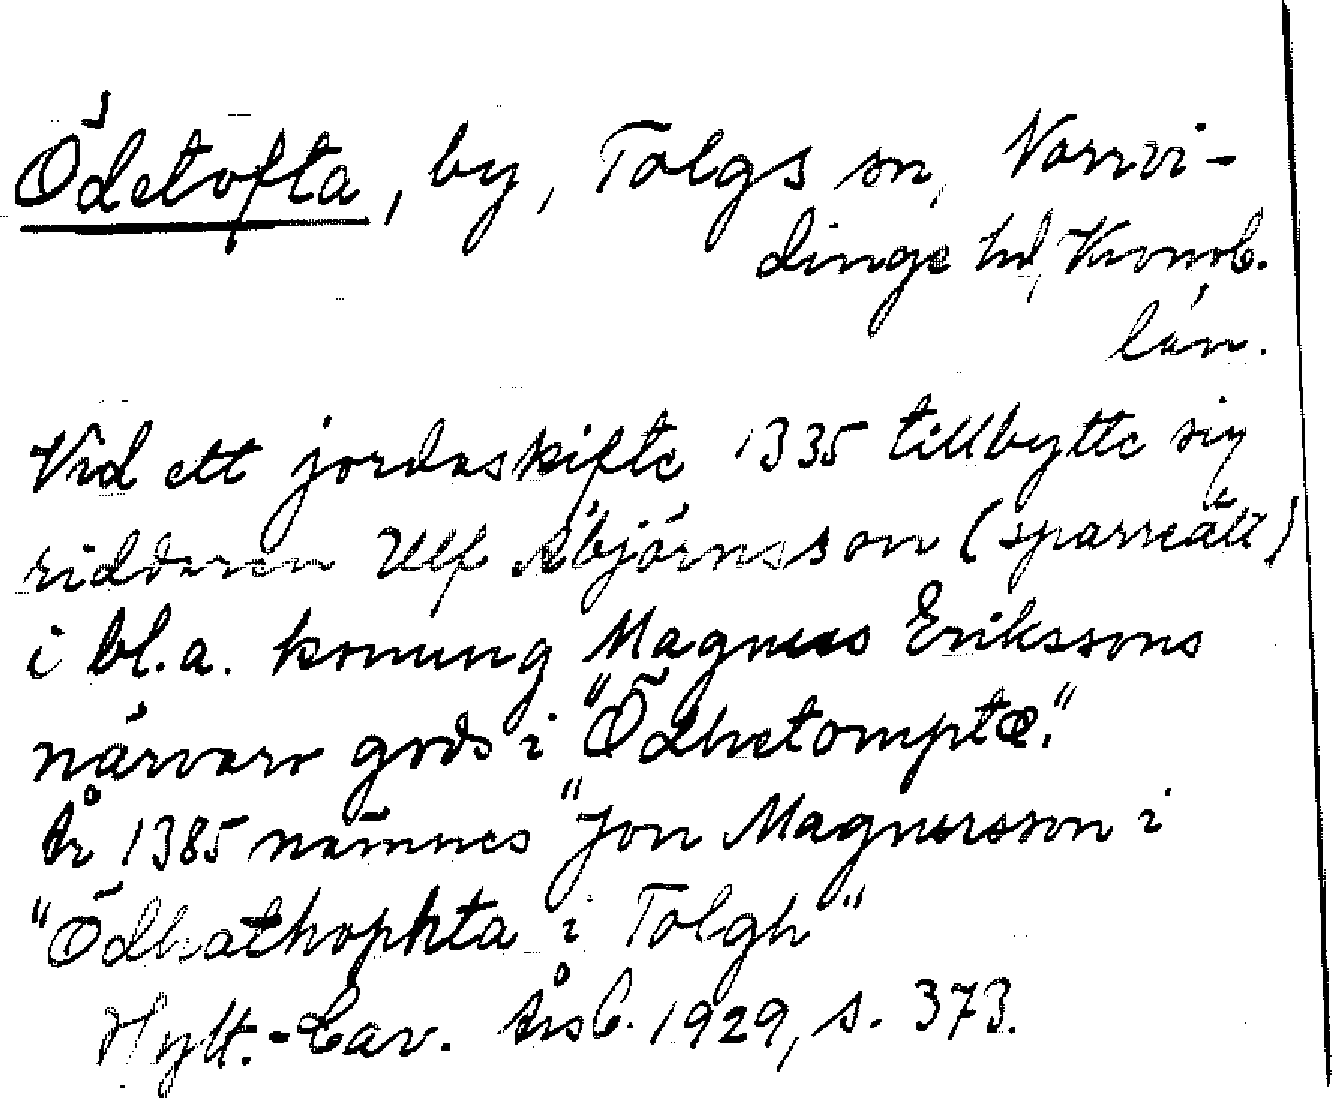 Ödetofta, by, Tolgs sn, Norrvi-
dinge hd, Kronob.
län.
Vid ett jordaskifte 1335 tillbytte sig
riddaren Ulf Abjörnsson (sparreätt)
i bl.a. konung Magnus Erikssons
närvaro gods i "Ödhetomptæ."
År 1385 nämnes "Jon Magnusson i
"Ödhathophta i Tolgh"
Hylt.-Cav. Årsb. 1929, s. 373.